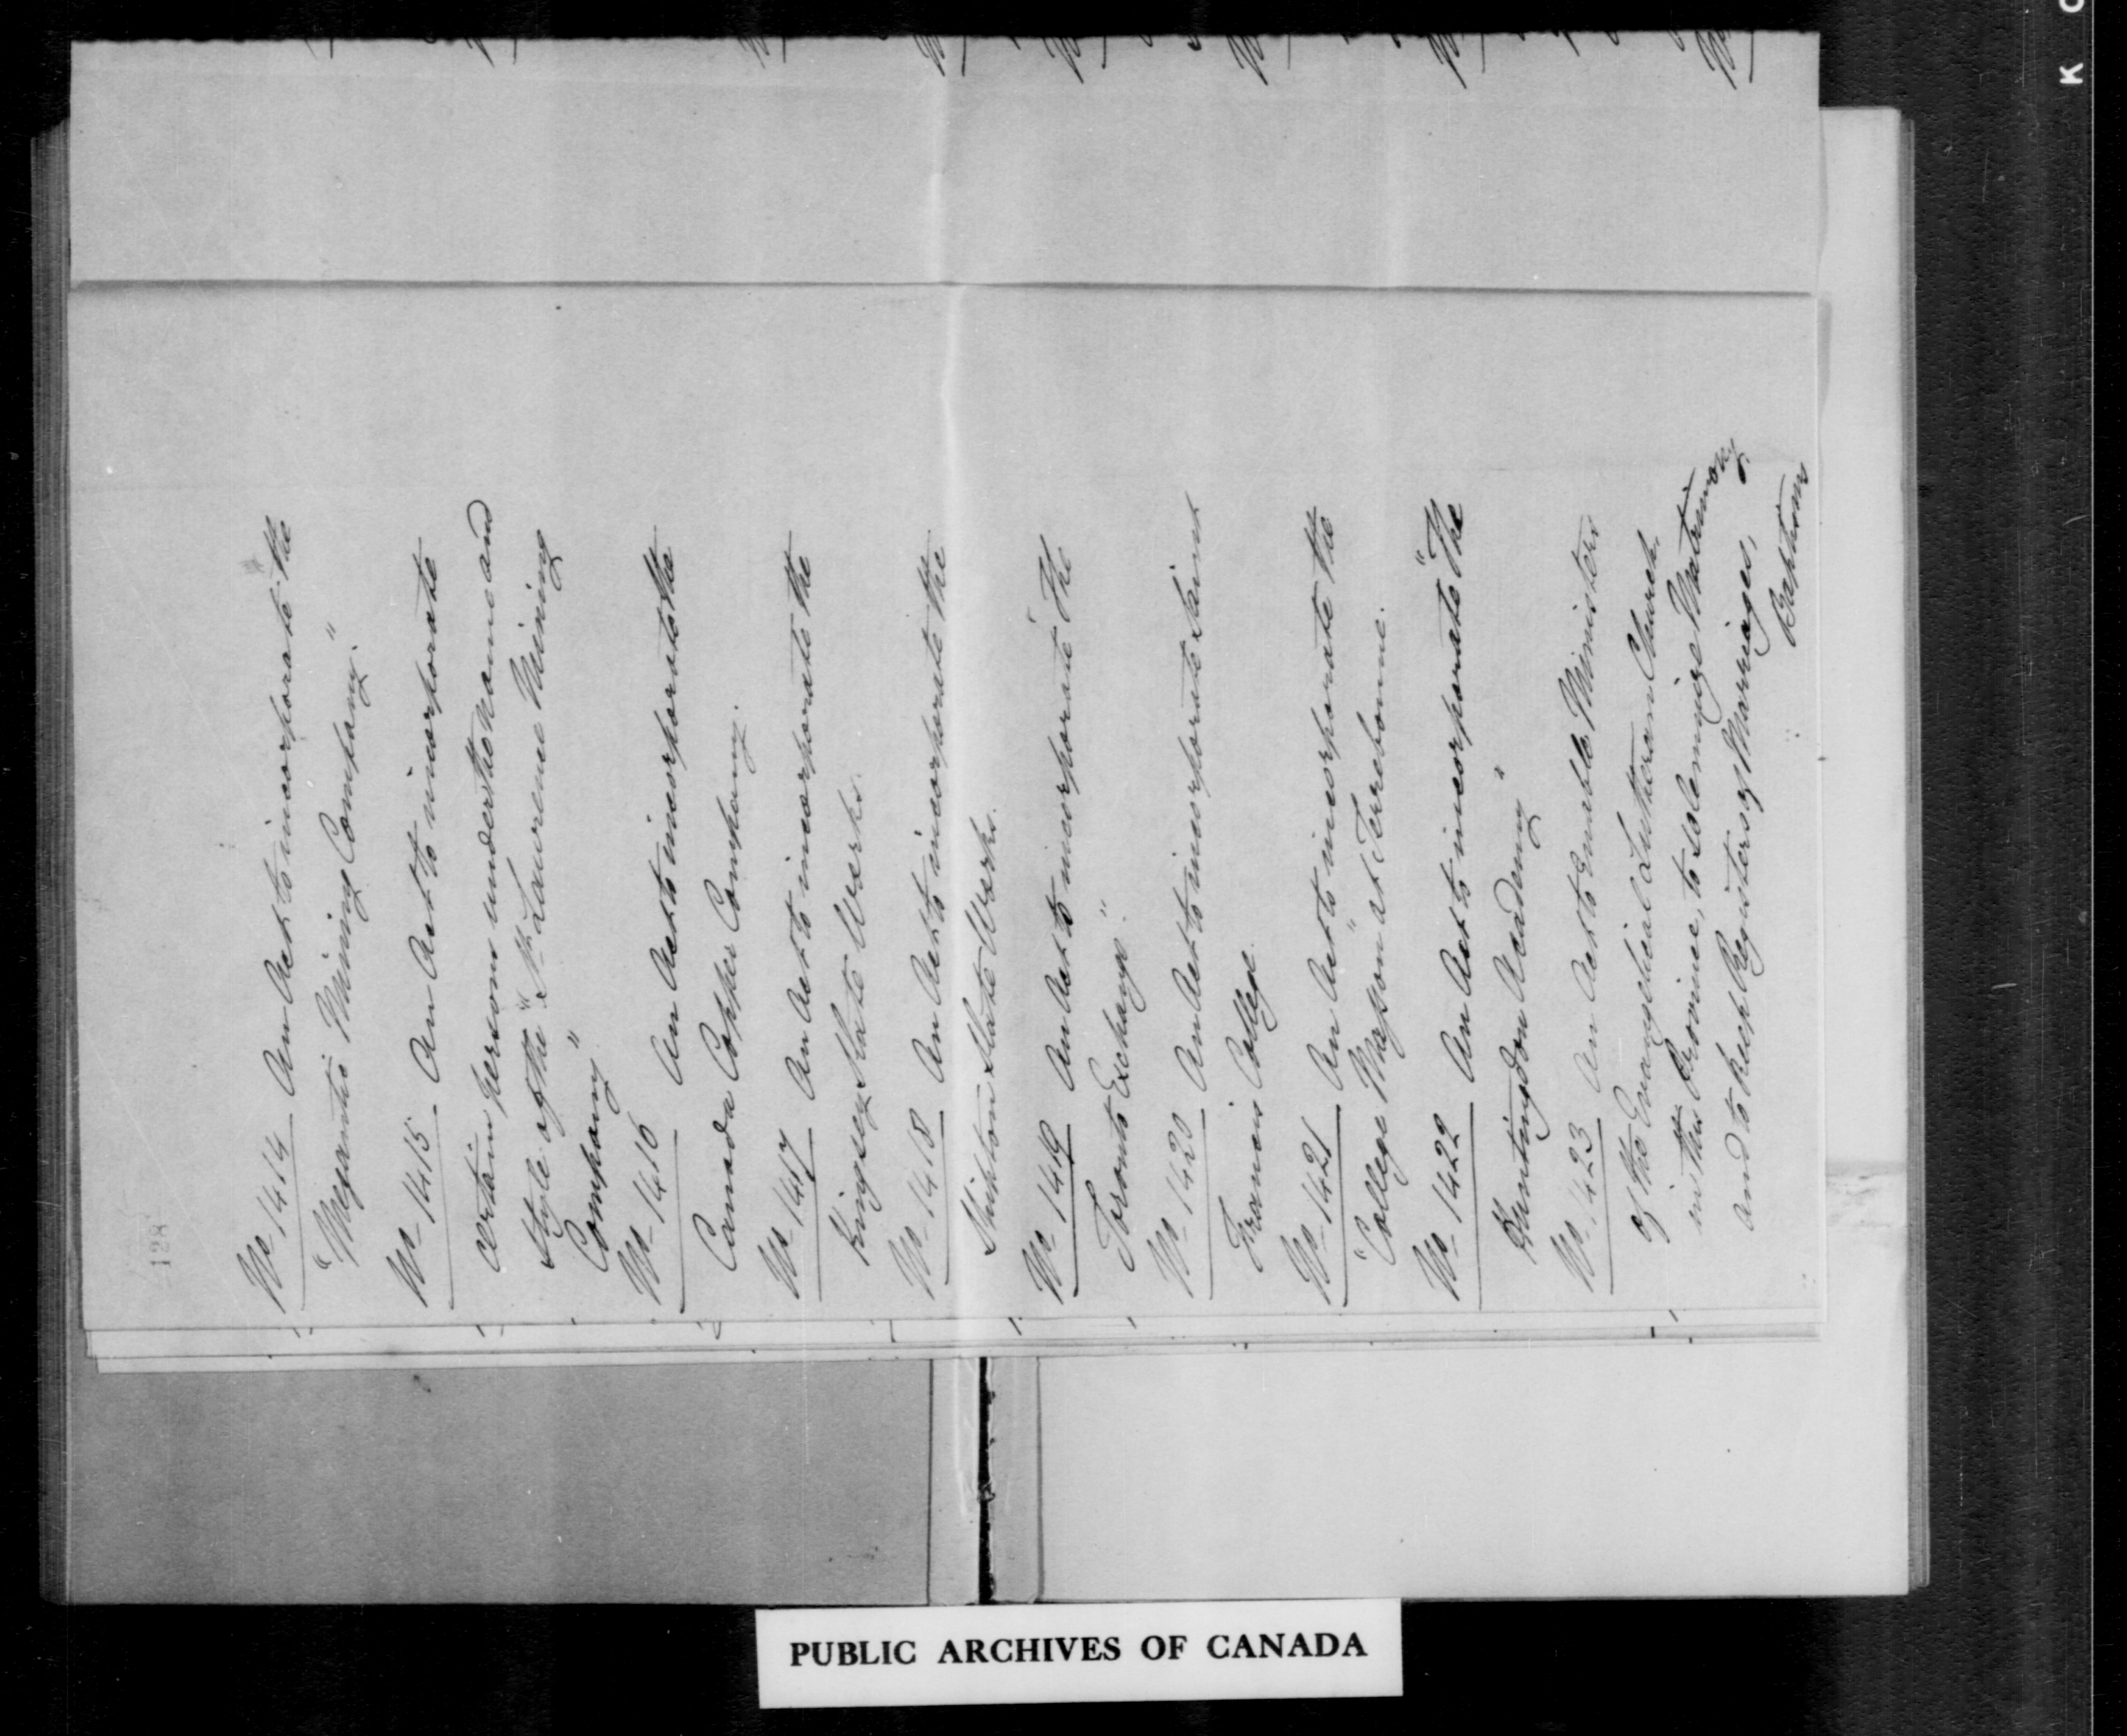 128
No 1414 An Act to incorporate the
"Megantic Mining Company."
No 1415 An Act to incorporate
certain persons under the Name and
Style of the "St. Lawrence Mining
Company"
No 1416 An Act to incorporate the
Canada Copper Company.
No 1417 An Act to incorporate the
Kingsey Slate Works.
No 1418 An Act to incorporate the
Shipton Slate Works.
No 1419 An Act to incorporate "The
Toronto Exchange."
No 1420 An Act to incorporate Saint
Francis College.
No 1421 An Act to incorporate the
"College Masson" at Terrebonne.
No 1422 An Act to incorporate "The
Huntingdon Academy"
No 1423 An Act to Enable Ministers
of the Evangelical Lutheran Church
in this Province, to solemnize Matrimony,
and to keep Registers of Marriages,
Baptisms
PUBLIC ARCHIVES OF CANADA